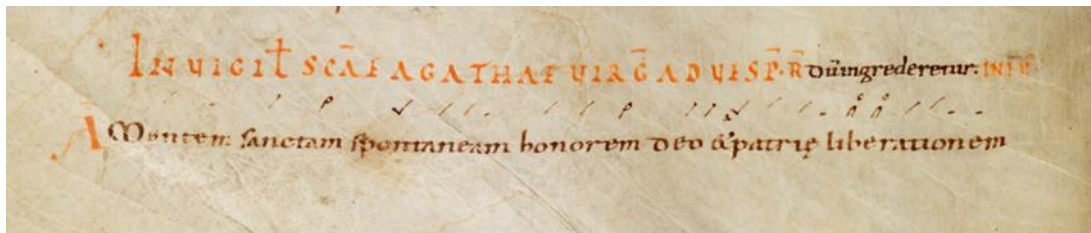 IN VIGIŁ SCĀE AGATHAE VIRḠ AD VESP̄·R̄ Dū ingrederetur. INV̄
A Mentem sanctam spontaneam honorem deo & patrię liberationem